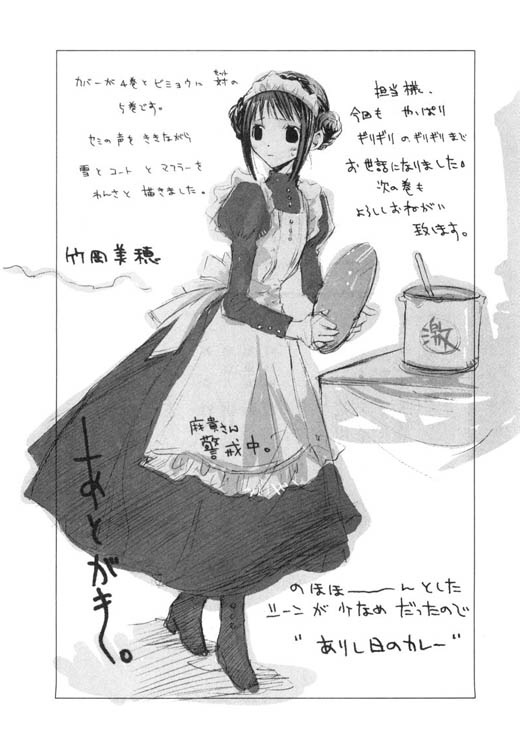 カバーが4巻とビミョウに対(セット)の
5巻です。
セミの声をききながら
雪とコートとマフラーを
わんさと描きました。
竹岡美穂
担当様、
今回も やっぱり
ギリギリのギリギリまで
お世話になりました。
次の巻も
よろしくおねがい
致します。
激
麻貴さん
警戒中。
ーあとがきー。
のほほーーんとした
シーンが少なめだったので
"ありし日のカレー"